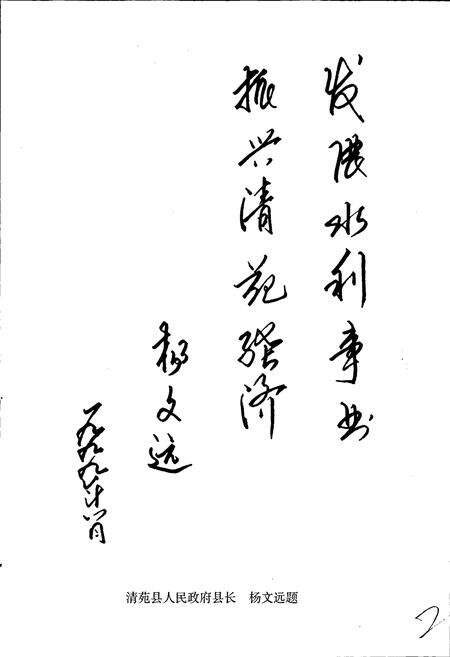 发展水利事业
振兴清苑经济
杨文远
一九九九年八月
清苑县人民政府县长 杨文远题